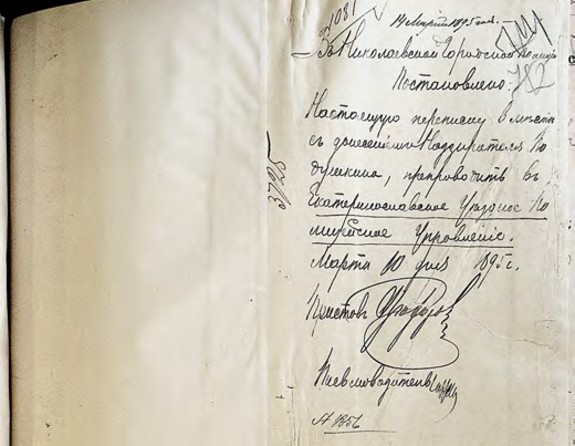 № 1081
14 Марта 1895 год.
Въ Николаевской Городской Полиціи
Постановлено:
782
Настоящую переписку вмѣстѣ
съ донесеніемъ Надзирателя По
душкина, препроводить въ
Екатеринославское Уѣздное По
лицейское Управленіе.
Марта 10 дня 1895 г.
Приставъ
Письмоводитель
№ 1356
3798